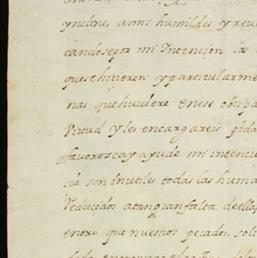 ynulius, amos humildes y reue
candose por mi Intencion la
que se hizieren y particularme
nas que huuiere en ese obispa
Virtud y les encargareis pida
fauorezca y ayude mi intencio
cia son Inutiles todas las huma
Reducidos a tan gran falta de ellas
enoxo que nuestros pecados, soli